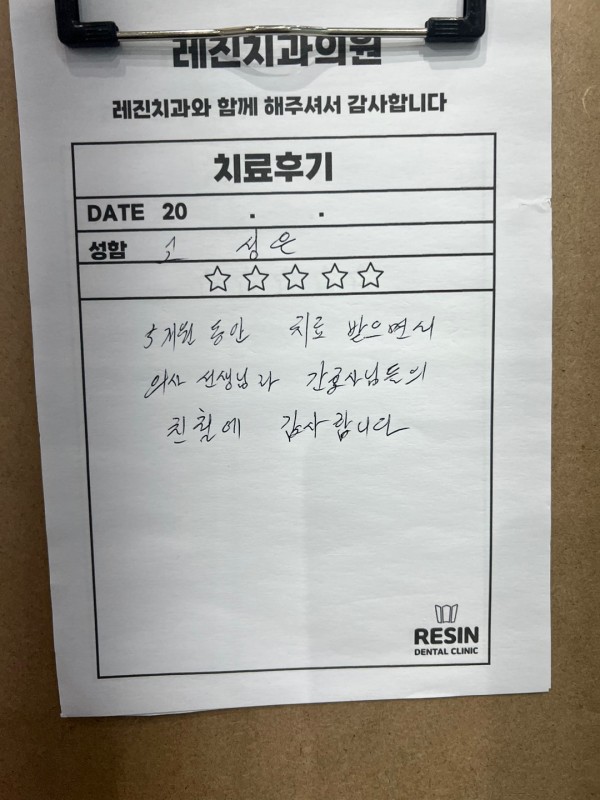 레진치과의원
레진치과와 함께 해주셔서 감사합니다
치료후기
DATE 20 . .
성함 고 성은
5개월 동안 치료 받으면서
의사 선생님과 간호사님들의
친절에 감사합니다
RESIN
DENTAL CLINIC